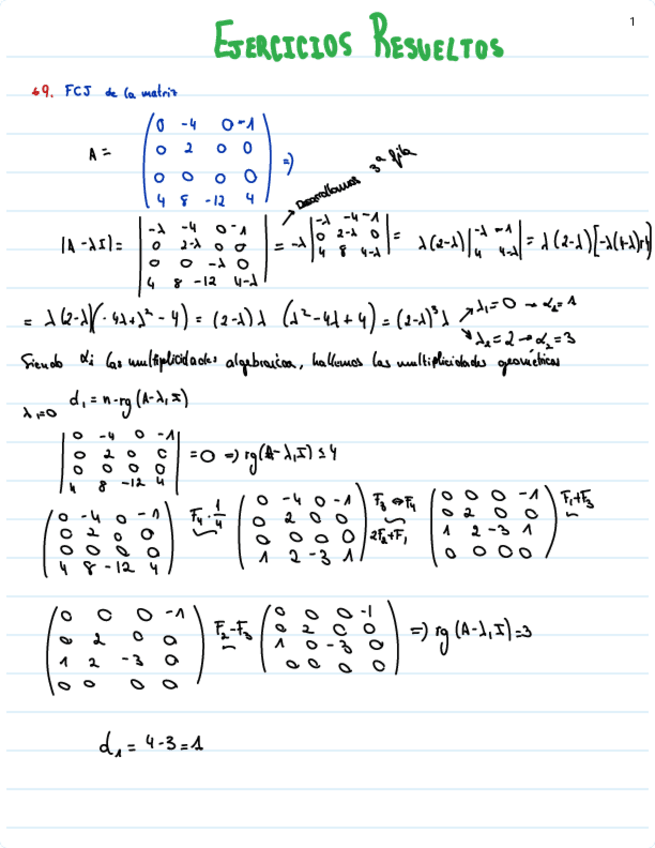 1
EJERCICIOS RESUELTOS
49. FCJ de la matriz
A = \begin{pmatrix} 0 & -4 & 0 & -1 \\ 0 & 2 & 0 & 0 \\ 0 & 0 & 0 & 0 \\ 4 & 8 & -12 & 4 \end{pmatrix} =)
Desarrollamos 3ª fila
|A-λI| = \begin{vmatrix} -λ & -4 & 0 & -1 \\ 0 & 2-λ & 0 & 0 \\ 0 & 0 & -λ & 0 \\ 4 & 8 & -12 & 4-λ \end{vmatrix} = -λ \begin{vmatrix} -λ & -4 & -1 \\ 0 & 2-λ & 0 \\ 4 & 8 & 4-λ \end{vmatrix} = λ(2-λ) \begin{vmatrix} -λ & -1 \\ 4 & 4-λ \end{vmatrix} = λ(2-λ)[-λ(4-λ)+4]
= λ(2-λ)(-4λ+λ² - 4) = (2-λ)λ (λ²-4λ+4) = (2-λ)³λ ↗ λ₁=0 → α₁=1
↘ λ₂=2 → α₂=3
Siendo αi las multiplicidades algebraicas, hallemos las multiplicidades geométricas
λ₁=0 d₁ = n-rg(A-λ₁I)
\begin{vmatrix} 0 & -4 & 0 & -1 \\ 0 & 2 & 0 & 0 \\ 0 & 0 & 0 & 0 \\ 4 & 8 & -12 & 4 \end{vmatrix} = 0 =) rg(A-λ₁I) ≤ 4
\begin{pmatrix} 0 & -4 & 0 & -1 \\ 0 & 2 & 0 & 0 \\ 0 & 0 & 0 & 0 \\ 4 & 8 & -12 & 4 \end{pmatrix} F₄·\frac{1}{4} \begin{pmatrix} 0 & -4 & 0 & -1 \\ 0 & 2 & 0 & 0 \\ 0 & 0 & 0 & 0 \\ 1 & 2 & -3 & 1 \end{pmatrix} F₃ ↔ F₄ 2F₂+F₁ \begin{pmatrix} 0 & 0 & 0 & -1 \\ 0 & 2 & 0 & 0 \\ 1 & 2 & -3 & 1 \\ 0 & 0 & 0 & 0 \end{pmatrix} F₁+F₃
\begin{pmatrix} 0 & 0 & 0 & -1 \\ 0 & 2 & 0 & 0 \\ 1 & 2 & -3 & 0 \\ 0 & 0 & 0 & 0 \end{pmatrix} F₂-F₃ \begin{pmatrix} 0 & 0 & 0 & -1 \\ 0 & 2 & 0 & 0 \\ 1 & 0 & -3 & 0 \\ 0 & 0 & 0 & 0 \end{pmatrix} =) rg(A-λ₁I)=3
d₁ = 4-3=1